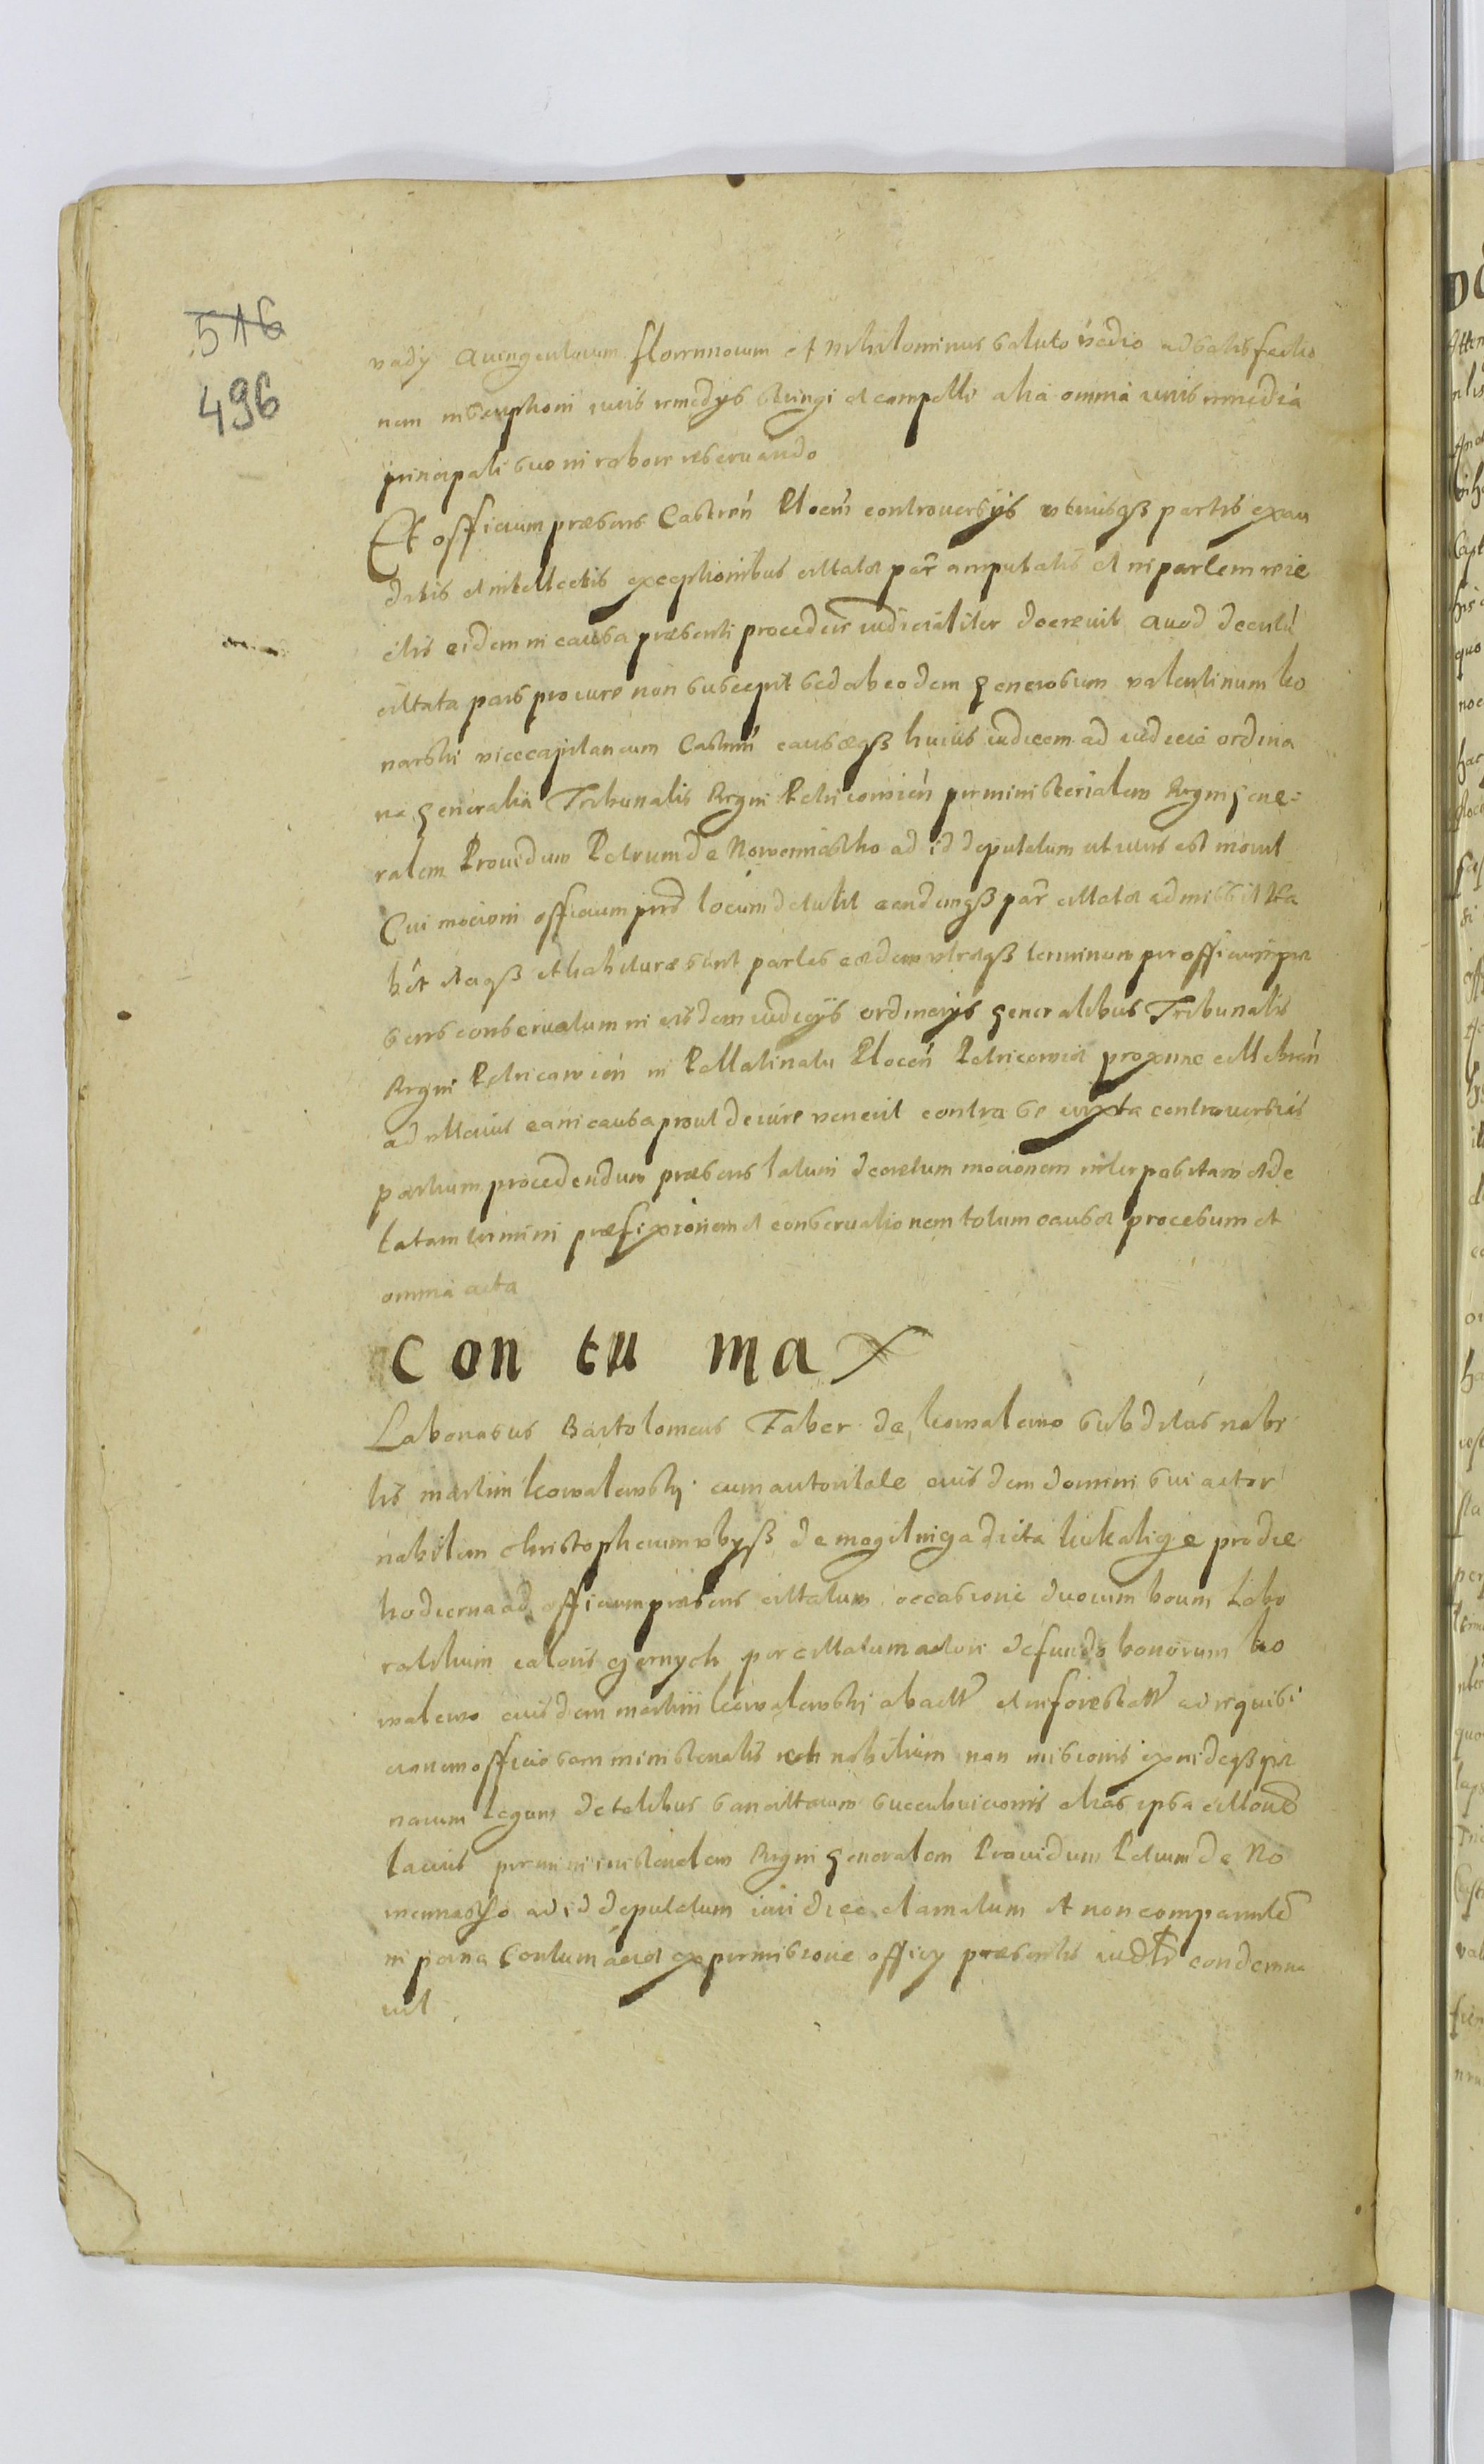 516
496
vadij quingentorum florenorum et nihilominus soluto vadio ad satisfactio
nem inscriptioni iuris remedijs stringi et compelli alia omnia iuris remedia
principali suo in robore reservando
Et officium præsens Castren̄ Plocen̄ controversijs utriusqȝ partis exau
ditis et intellectis exceptionibus cittatæ par̃ amputatis et in partem reie
ctis eidem in causa præsenti procedere iudicialiter decrevit quod decretū
cittata pars procure non suscepit sed ab eodem generosum valentinum ko
narski vicecapitaneum Castren̄ causæqȝ huius iudicem ad iudicia ordina
ria generalia Tribunalis Regni Petricovien̄ per ministerialem Regni gene=
ralem Providum Petrum de Nowemiastho ad id deputatum ut iuris est movit
Cui mocioni officium præd locum detulit eandemqȝ par̃ cittatæ admissit Ita
hēt itaqȝ et habituræ sunt partes eædem utræqȝ terminum per officium præ
sens conservatum in eisdem iudicijs ordinarijs generalibus Tribunalis
Regni Petricovien̄ in Pallatinatu Plocen̄ Petricoviæ proxime cellebran̄
ad ulterius ea in causa prout de iure venerit contra se iuxta controversias
partium procedendum præsens latum decretum mocionem interpositam et de
latam termini præfixionem et conservationem totum causæ processum et
omnia acta
Con tu max
Laboriosus Bartolomeus Faber de kowalewo subditus nobi
lis martini kowalewski cum autoritate eiusdem domini sui actor
nobilem christopherum de mogilnica dicta pro die
hodierna ad officium præsens cittatum occasione duorum boum labo
ratilium coloris czernych per cittatum actori de fundo bonorum ko
walewo eiusdem martini kowalewski abact et inforestat ad requisi
cionem officiosam ministerialis et nobilium non missionis exindeqȝ pæ
narum legum de talibus sancittarum succubuicionis alias ipsa cittōne
lacius per ministerialem Regni generalem Providum Petrum de No
wemiastho ad id deputatum iuridice clamatum et non comparentē
in pæna contumaciæ ex permissione officij præsentis iudtr condemna
vit.